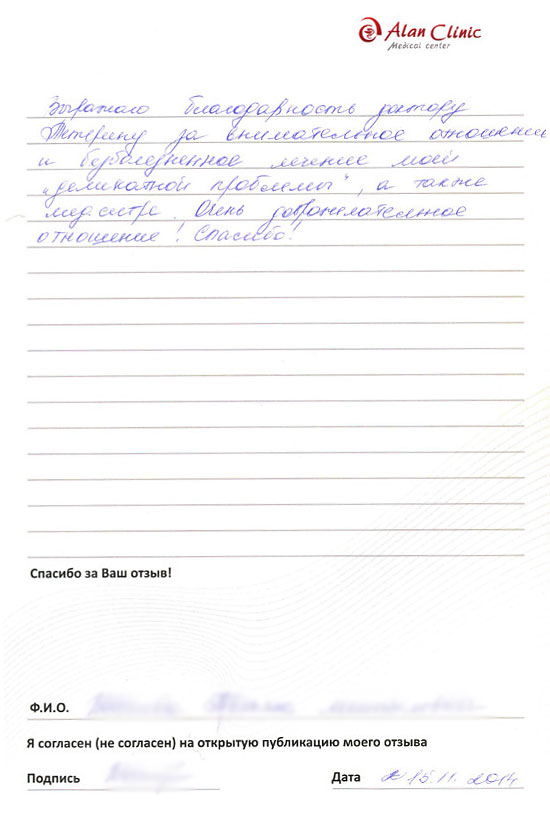 Alan Clinic
Medical center
Выражаю благодарность доктору
Тетерину за внимательное отношение
и безболезненное лечение моей
"деликатной проблемы", а также
медсестре. Очень доброжелательное
отношение! Спасибо!
Спасибо за Ваш отзыв!
Ф.И.О.
Я согласен (не согласен) на открытую публикацию моего отзыва
Подпись
Дата 15.11.2014